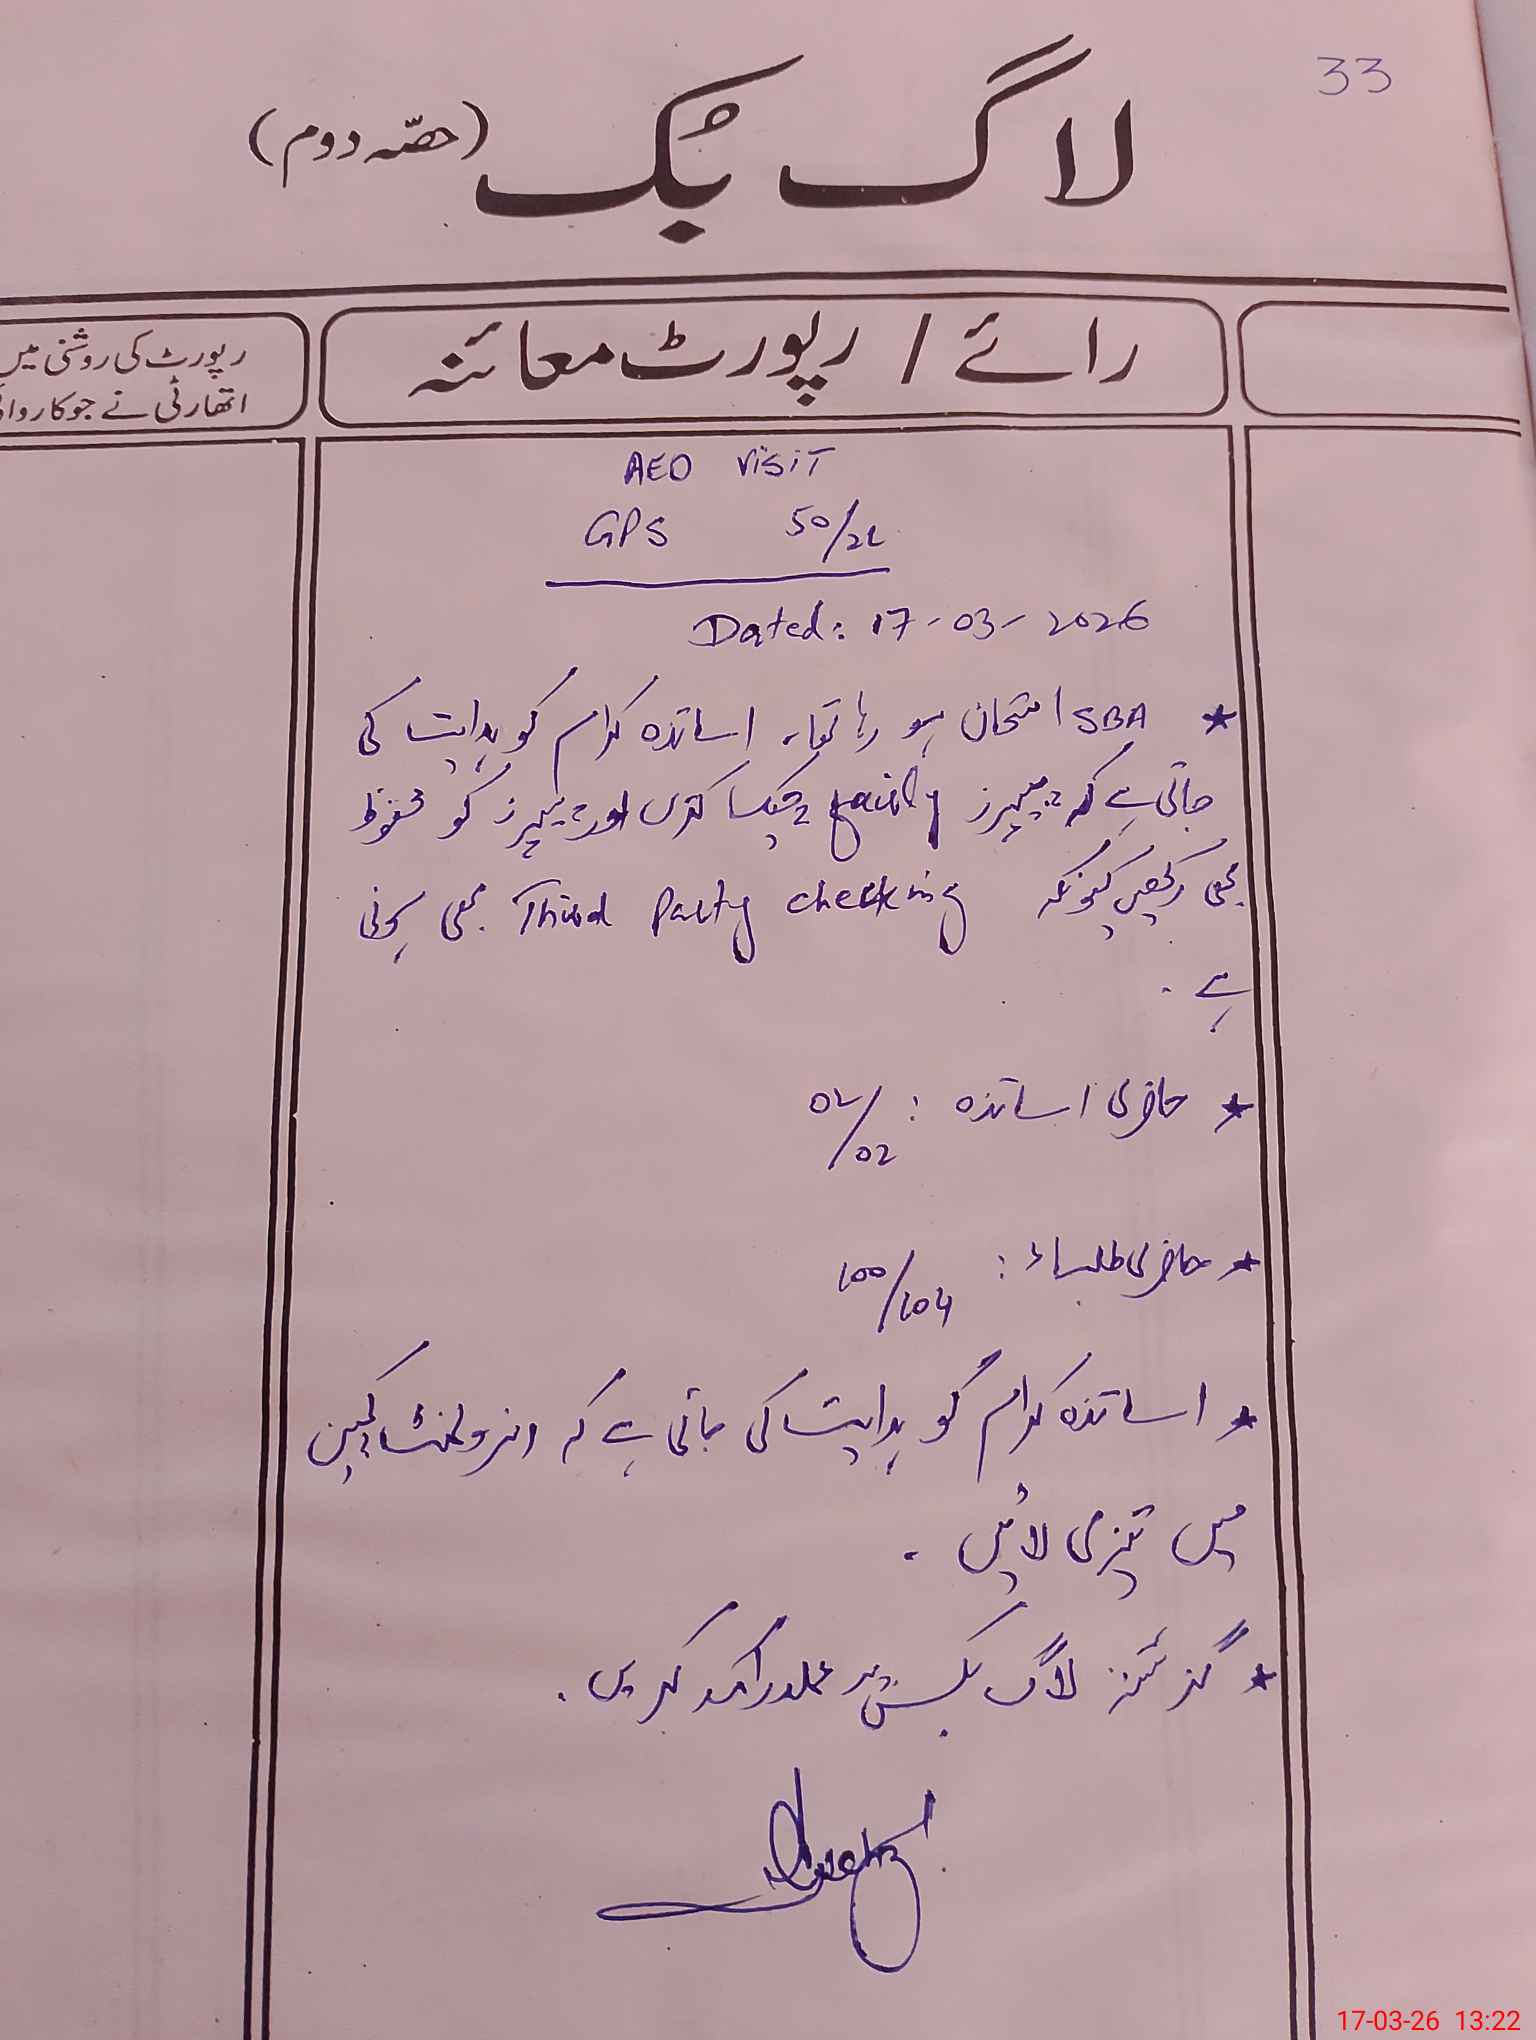 33
لاگ بُک (حصّہ دوم)
رائے / رپورٹ معائنہ
رپورٹ کی روشنی میں
اتھارٹی نے جو کاروا
AEO VISIT
GPS 50/2L
Dated: 17-03-2026
★ SBA امتحان ہو رہا تھا۔ اساتذہ کرام کو ہدایت کی
جاتی ہے کہ پیپرز fairly چیک کریں اور پیپرز کو محفوظ
بھی رکھیں کیونکہ Third Party checking بھی ہونی
ہے۔
★ حاضری اساتذہ : 02/02
★ حاضری طلباء : 100/104
★ اساتذہ کرام کو ہدایت کی جاتی ہے کہ انرولمنٹ کمپین
میں تیزی لائیں۔
★ گزشتہ لاگ بکس پر عملدرآمد کریں۔
17-03-26 13:22